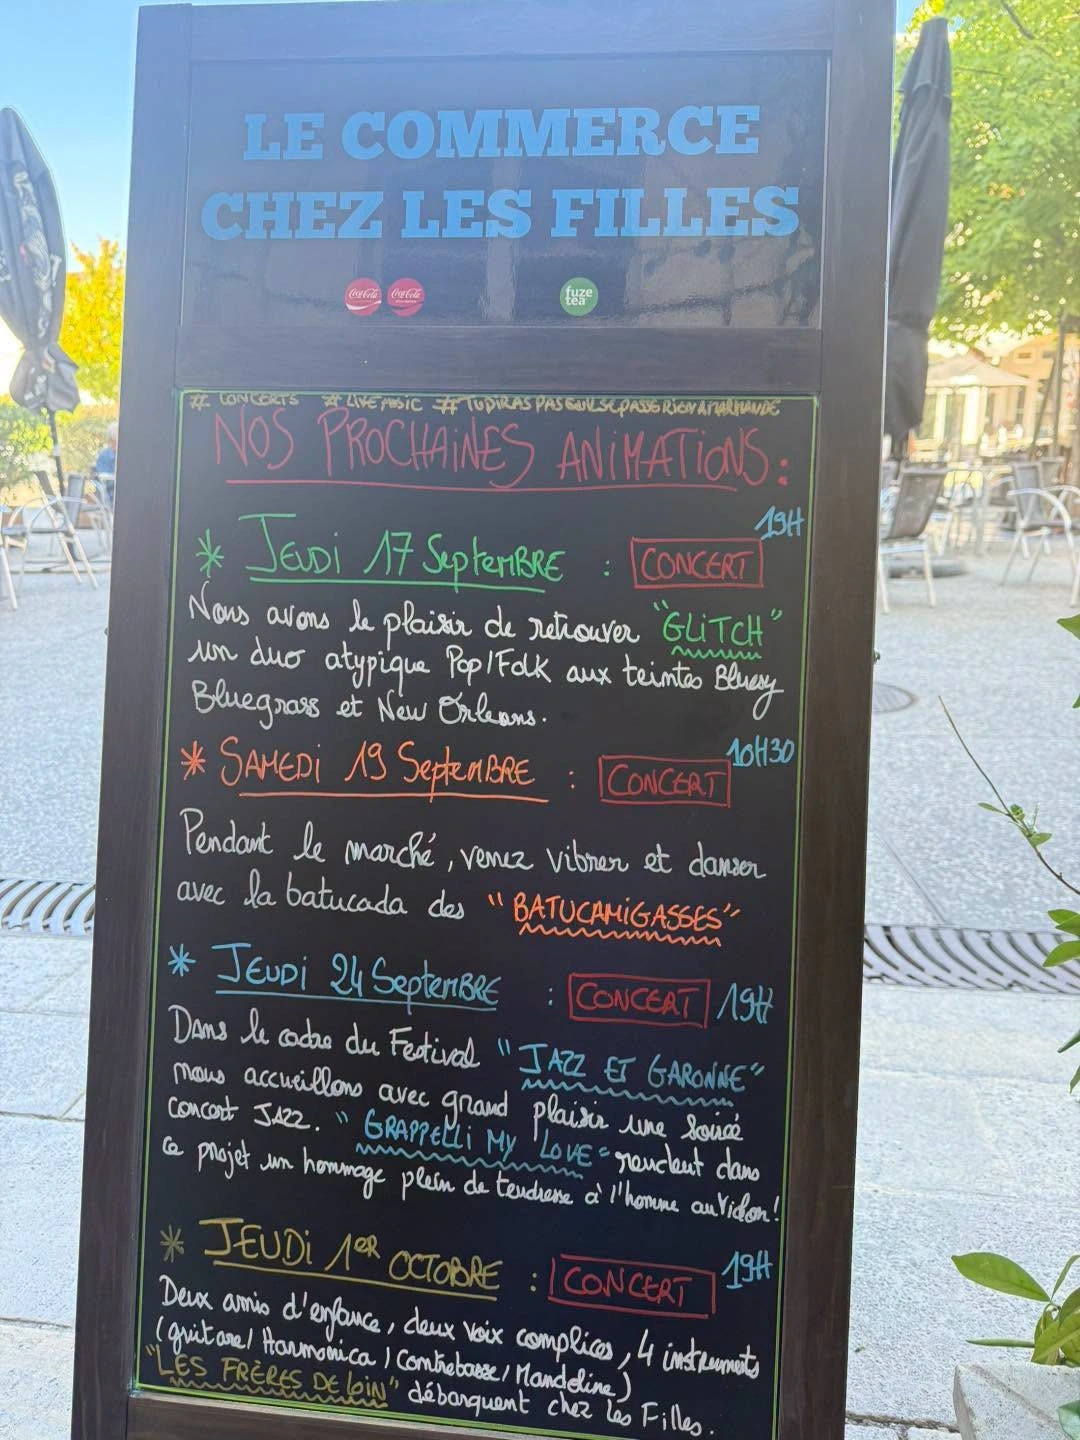 LE COMMERCE
CHEZ LES FILLES
Coca-Cola Coca-Cola fuze tea
# CONCERTS # LIVEMUSIC # TUDIRASPASQUILSEPASSERIENAMARMANDE
NOS PROCHAINES ANIMATIONS :
19H
* JEUDI 17 SEPTEMBRE : CONCERT
Nous avons le plaisir de retrouver "GLITCH"
un duo atypique Pop/Folk aux teintes Bluesy
Bluegrass et New Orleans.
10H30
* SAMEDI 19 SEPTEMBRE : CONCERT
Pendant le marché, venez vibrer et danser
avec la batucada des "BATUCAMIGASSES"
* JEUDI 24 SEPTEMBRE : CONCERT 19H
Dans le cadre du Festival "JAZZ ET GARONNE"
nous accueillons avec grand plaisir une soirée
concert JAZZ. "GRAPPELLI MY LOVE" rendent dans
ce projet un hommage plein de tendresse à l'homme au Violon!
19H
* JEUDI 1ER OCTOBRE : CONCERT
Deux amis d'enfance, deux voix complices, 4 instruments
(guitare/ Harmonica / Contrebasse/ Mandoline)
"LES FRÈRES DE LOIN" débarquent chez Les Filles.